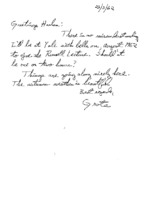 Greetings Harlan:
There is no misunderstanding
I'll be at Yale with bells on, August 1962
to give the Russell Lecture. Should it
be one or two hours?
Things are going along nicely here.
The autumn weather is beautiful.
Best regards,